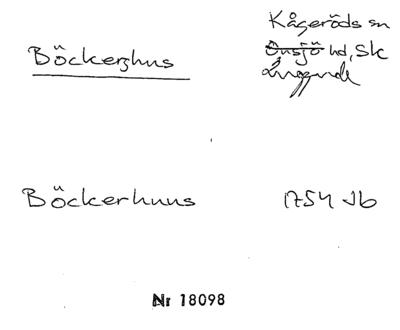 Böckerhus Kågeröds sn
Onsjö hd, Sk
Luggude
Böckerhuus 1754 Jb
Nr 18098